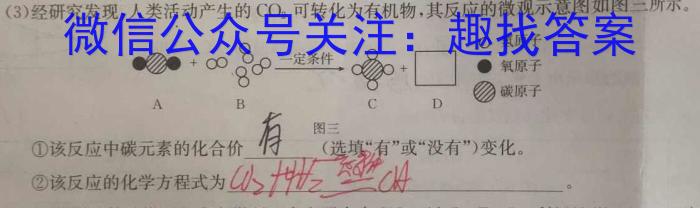 (3)经研究发现,人类活动产生的CO₂可转化为有机物,其反应的微观示意图如图三所示。
微信公众号关注：趣找答案
氢原子
+ 一定条件 + 氧原子
碳原子
A B C D
图三
①该反应中碳元素的化合价 有 (选填“有”或“没有”)变化。
②该反应的化学方程式为 CO₂+4H₂ 。